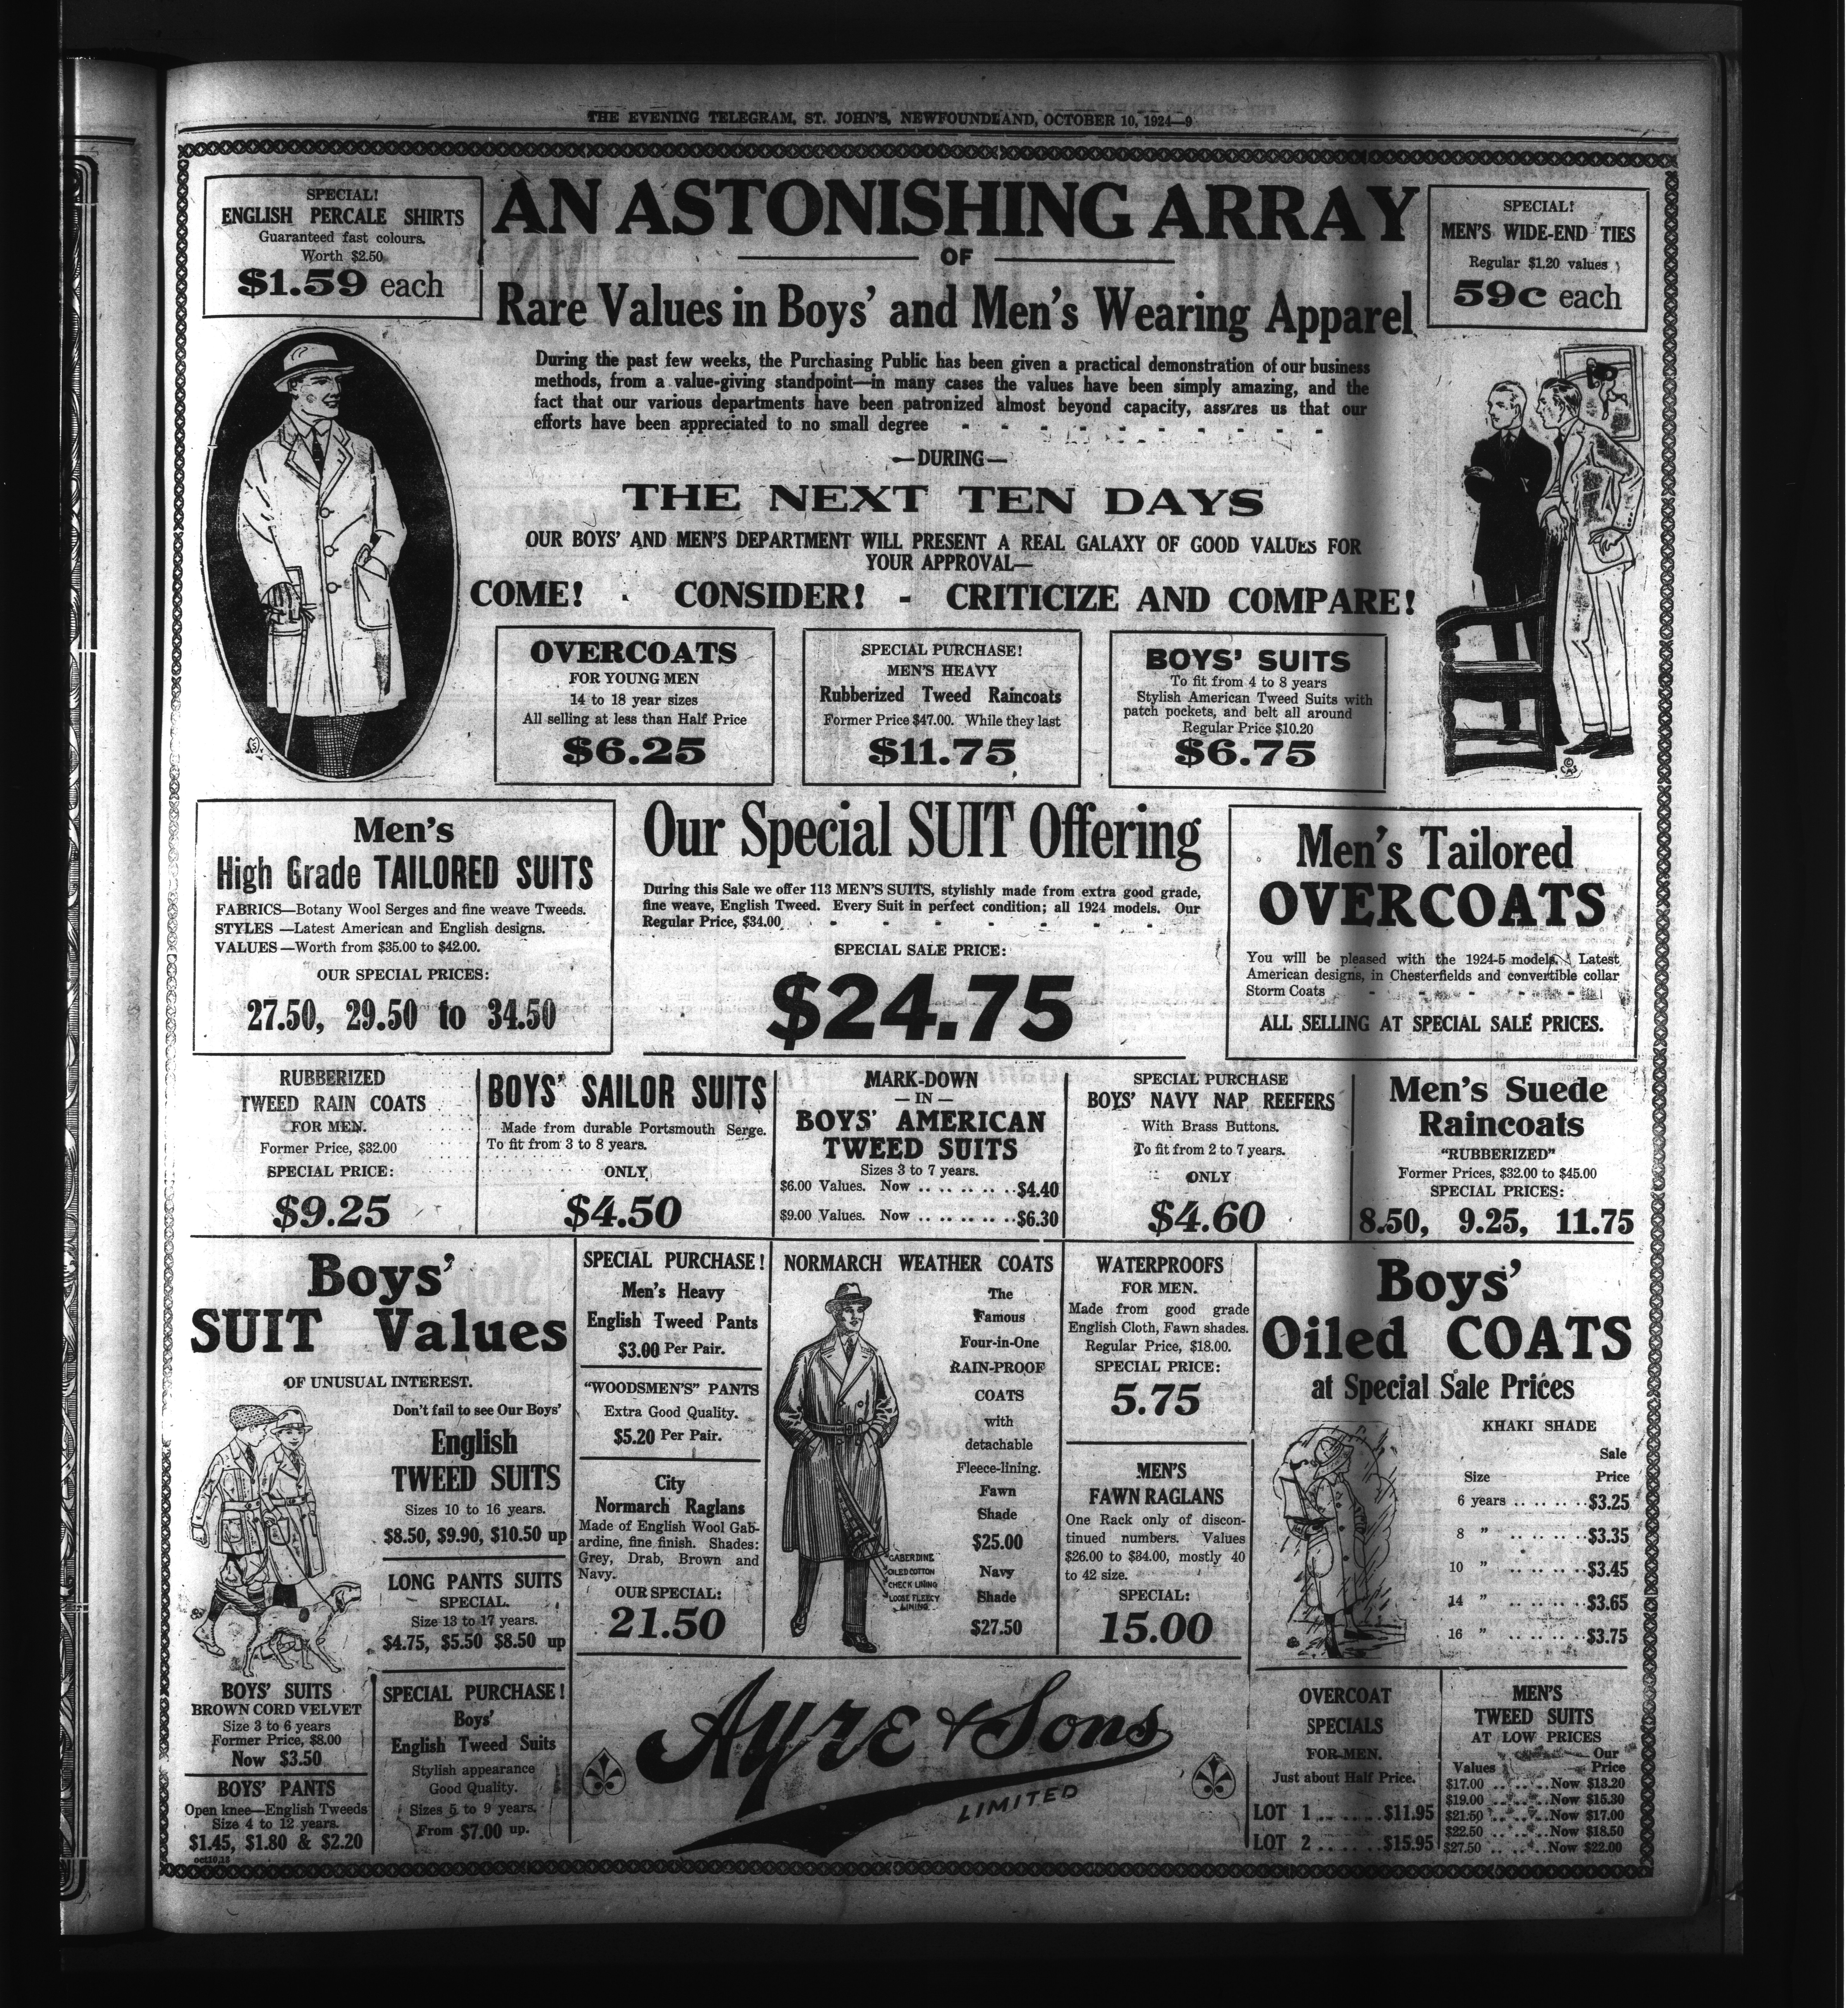 THE EVENING TELEGRAM, ST. JOHN'S, NEWFOUNDLAND, OCTOBER 10, 1924—9
SPECIAL!
ENGLISH PERCALE SHIRTS
Guaranteed fast colours.
Worth $2.50
$1.59 each
AN ASTONISHING ARRAY
OF
Rare Values in Boys' and Men's Wearing Apparel
SPECIAL!
MEN'S WIDE-END TIES
Regular $1.20 values
59c each
During the past few weeks, the Purchasing Public has been given a practical demonstration of our business
methods, from a value-giving standpoint—in many cases the values have been simply amazing, and the
fact that our various departments have been patronized almost beyond capacity, assures us that our
efforts have been appreciated to no small degree - - - - - - - - - -
—DURING—
THE NEXT TEN DAYS
OUR BOYS' AND MEN'S DEPARTMENT WILL PRESENT A REAL GALAXY OF GOOD VALUES FOR
YOUR APPROVAL—
COME! - CONSIDER! - CRITICIZE AND COMPARE!
OVERCOATS
FOR YOUNG MEN
14 to 18 year sizes
All selling at less than Half Price
$6.25
SPECIAL PURCHASE!
MEN'S HEAVY
Rubberized Tweed Raincoats
Former Price $47.00. While they last
$11.75
BOYS' SUITS
To fit from 4 to 8 years
Stylish American Tweed Suits with
patch pockets, and belt all around
Regular Price $10.20
$6.75
Men's
High Grade TAILORED SUITS
FABRICS—Botany Wool Serges and fine weave Tweeds.
STYLES —Latest American and English designs.
VALUES —Worth from $35.00 to $42.00.
OUR SPECIAL PRICES:
27.50, 29.50 to 34.50
Our Special SUIT Offering
During this Sale we offer 113 MEN'S SUITS, stylishly made from extra good grade,
fine weave, English Tweed. Every Suit in perfect condition; all 1924 models. Our
Regular Price, $34.00 - - - - - - - - -
SPECIAL SALE PRICE:
$24.75
Men's Tailored
OVERCOATS
You will be pleased with the 1924-5 models. Latest
American designs, in Chesterfields and convertible collar
Storm Coats - - - - - -
ALL SELLING AT SPECIAL SALE PRICES.
RUBBERIZED
TWEED RAIN COATS
FOR MEN.
Former Price, $32.00
SPECIAL PRICE:
$9.25
BOYS' SAILOR SUITS
Made from durable Portsmouth Serge.
To fit from 3 to 8 years.
ONLY
$4.50
MARK-DOWN
— IN —
BOYS' AMERICAN
TWEED SUITS
Sizes 3 to 7 years.
$6.00 Values. Now .. .. .. .. ..$4.40
$9.00 Values. Now .. .. .. .. ..$6.30
SPECIAL PURCHASE
BOYS' NAVY NAP REEFERS
With Brass Buttons.
To fit from 2 to 7 years.
ONLY
$4.60
Men's Suede
Raincoats
"RUBBERIZED"
Former Prices, $32.00 to $45.00
SPECIAL PRICES:
8.50, 9.25, 11.75
Boys'
SUIT Values
OF UNUSUAL INTEREST.
Don't fail to see Our Boys'
English
TWEED SUITS
Sizes 10 to 16 years.
$8.50, $9.90, $10.50 up
LONG PANTS SUITS
SPECIAL.
Size 13 to 17 years.
$4.75, $5.50 $8.50 up
SPECIAL PURCHASE!
Men's Heavy
English Tweed Pants
$3.00 Per Pair.
"WOODSMEN'S" PANTS
Extra Good Quality.
$5.20 Per Pair.
City
Normarch Raglans
Made of English Wool Gab-
ardine, fine finish. Shades:
Grey, Drab, Brown and
Navy.
OUR SPECIAL:
21.50
NORMARCH WEATHER COATS
The
Famous
Four-in-One
RAIN-PROOF
COATS
with
detachable
Fleece-lining.
Fawn
Shade
$25.00
Navy
Shade
$27.50
GABERDINE
OILED COTTON
CHECK LINING
LOOSE FLEECY
LINING
WATERPROOFS
FOR MEN.
Made from good grade
English Cloth, Fawn shades.
Regular Price, $18.00.
SPECIAL PRICE:
5.75
MEN'S
FAWN RAGLANS
One Rack only of discon-
tinued numbers. Values
$26.00 to $34.00, mostly 40
to 42 size.
SPECIAL:
15.00
Boys'
Oiled COATS
at Special Sale Prices
KHAKI SHADE
Sale
Size Price
6 years .. .. .. ..$3.25
8 " .. .. .. ..$3.35
10 " .. .. .. ..$3.45
14 " .. .. .. ..$3.65
16 " .. .. .. ..$3.75
BOYS' SUITS
BROWN CORD VELVET
Size 3 to 6 years
Former Price, $8.00
Now $3.50
BOYS' PANTS
Open knee—English Tweeds
Size 4 to 12 years.
$1.45, $1.80 & $2.20
oct10,13
SPECIAL PURCHASE!
Boys'
English Tweed Suits
Stylish appearance
Good Quality.
Sizes 5 to 9 years.
From $7.00 up.
Ayre & Sons
LIMITED
OVERCOAT
SPECIALS
FOR MEN.
Just about Half Price.
LOT 1 .. .. .. ..$11.95
LOT 2 .. .. .. ..$15.95
MEN'S
TWEED SUITS
AT LOW PRICES
Our
Values Price
$17.00 .. .. ..Now $13.20
$19.00 .. .. ..Now $15.30
$21.50 .. .. ..Now $17.00
$22.50 .. .. ..Now $18.50
$27.50 .. .. ..Now $22.00